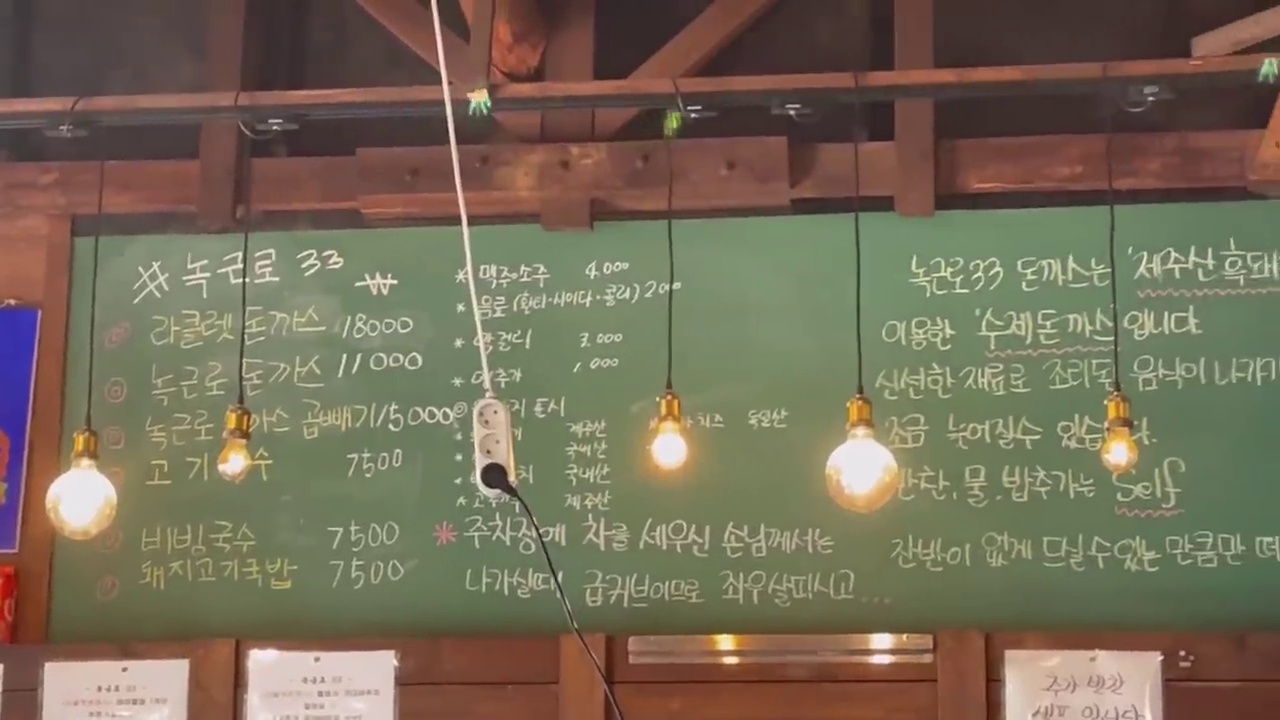 # 녹근로 33 ₩
라클렛 돈까스 18000
녹근로 돈까스 11000
녹근로 곱빼기 15000
고기 7500
비빔국수 7500
돼지고기국밥 7500
* 맥주·소주 4.000
* 음료(환타·사이다·콜라) 2000
* 3.000
* 1,000
표시
* 제주산 치즈 독일산
* 국내산
* 국내산
* 제주산
* 주차장에 차를 세우신 손님께서는
나가실때 급커브이므로 좌우살피시고...
녹근로33 돈까스는 '제주산 흑돼
이용한 '수제돈까스 입니다
신선한 재료로 음식이 나가기
조금 늦어질수
반찬.물.밥추가는 Self
잔반이 없게 드실수있는 만큼만
추가 반찬
셀프 입니다